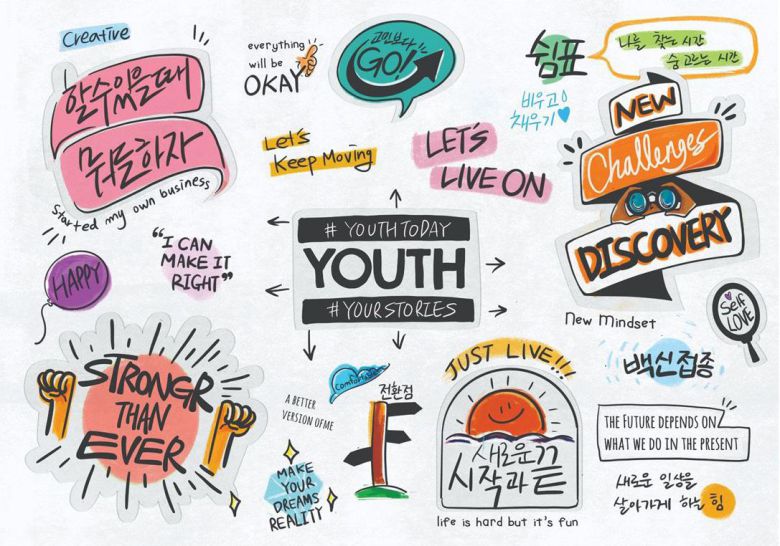 Creative
할수있을때
뭐든하자
Started my own business
everything
will be
OKAY
고민보다
GO!
쉼표
나를 찾는 시간
숨 고르는 시간
비우고
채우기
Let's
Keep Moving
LET'S
LIVE ON
NEW
Challenges
DISCOVERY
"I CAN
MAKE IT
RIGHT"
# YOUTHTODAY
YOUTH
#YOURSTORIES
HAPPY
New Mindset
Self
LOVE
STRONGER
THAN
EVER
A BETTER
VERSION OF ME
전환점
MAKE
YOUR
DREAMS
REALITY
JUST LIVE!!!
새로운
시작과 끝
life is hard but it's fun
백신접종
THE FUTURE DEPENDS ON
WHAT WE DO IN THE PRESENT
새로운 일상을
살아가게 하는 힘